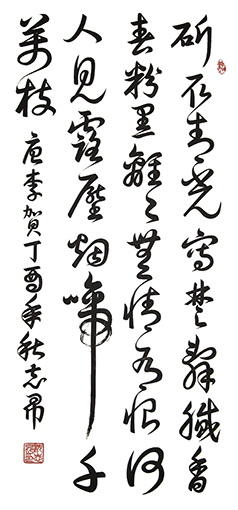 斫取青光寫楚辭膩香
春粉黑離離無情有恨何
人見露壓烟啼千
萬枝 唐李賀丁酉年秋志